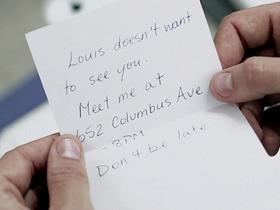 Louis doesn't want
to see you.
Meet me at
652 Columbus Ave
- 8PM
Don't be late